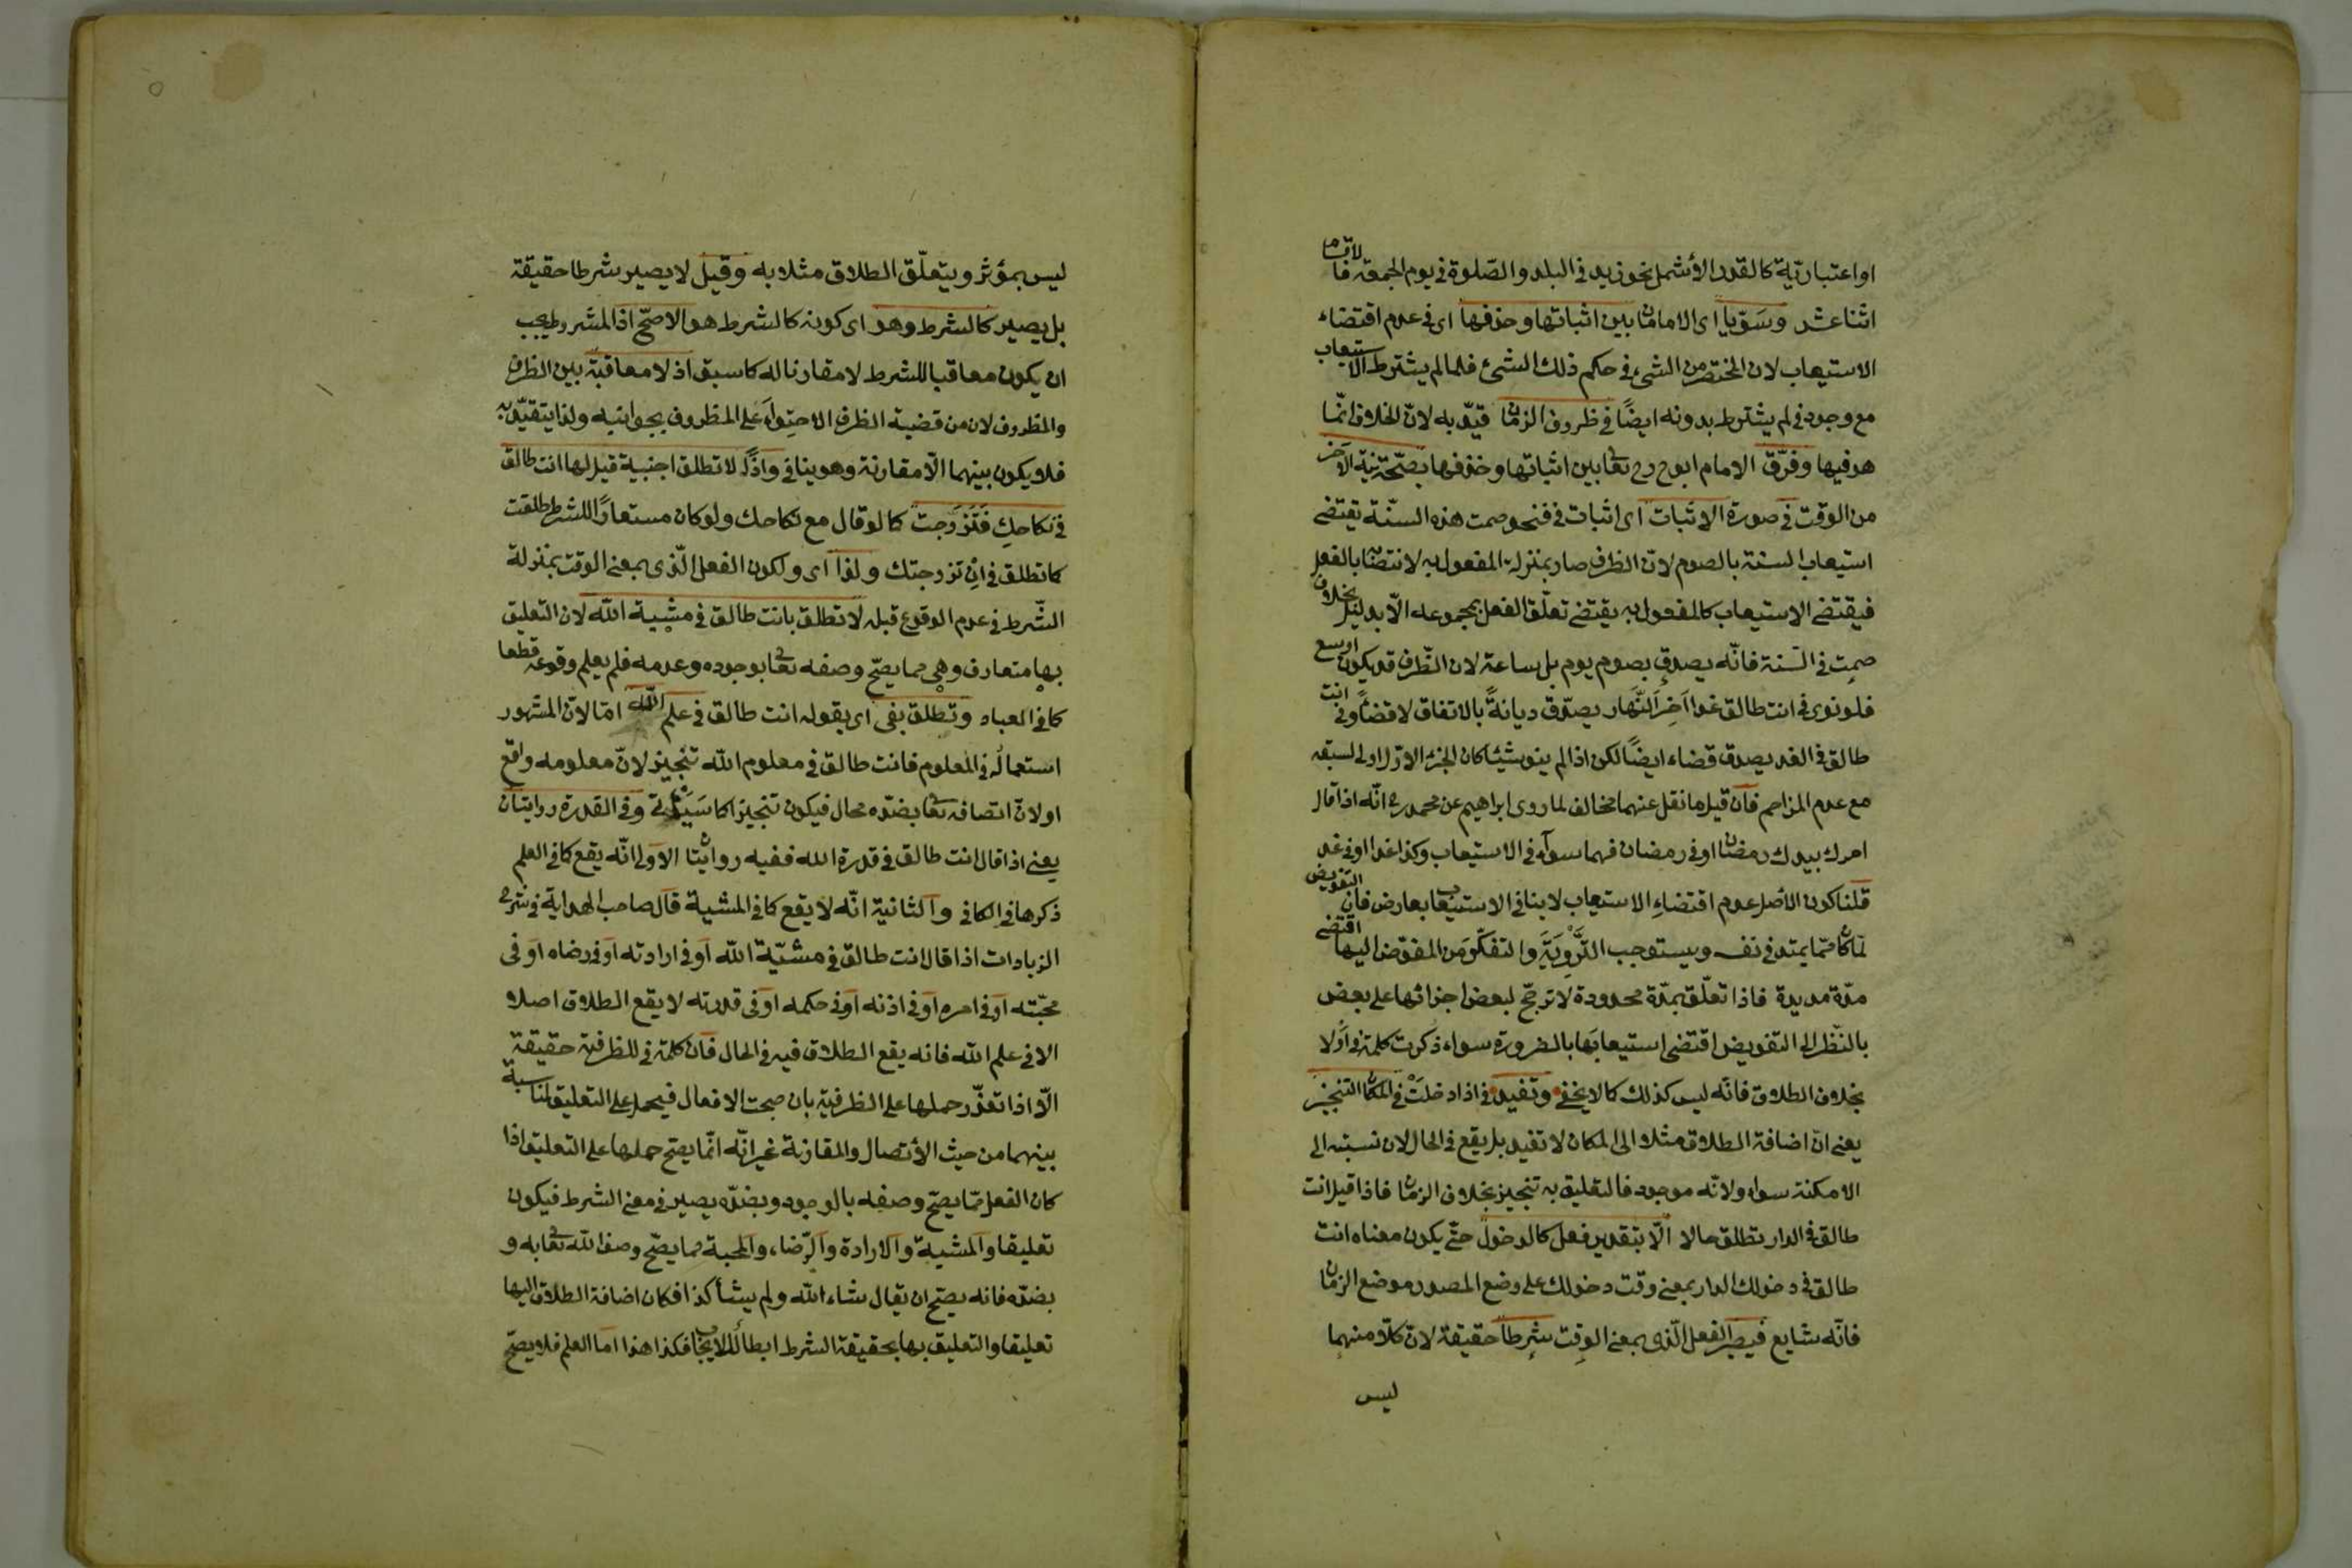 او اعتبارية كالقدر الأشمل نحو زيد في البلد والصّلوة في يوم الجمعة فالاقسام
اثنا عشر وسوّيا اى الامامان بين اثباتها وحذفها اى في عدم اقتضاء
الاستيعاب لان المختصر من الشيء في حكم ذلك الشئ فلما لم يشترط الاستيعاب
مع وجود في لم يشترط بدونه ايضًا في ظروف الزمان قيّد به لانّ الخلاف انّما
هو فيها وفرّق الامام ابو ح رح تعا بين اثباتها وحذفها بصحّة نية الآخر
من الوقت في صورة الاثبات اى اثبات في فنحو صمت هذه السنّة يقتضى
استيعاب السنة بالصوم لانّ الظرف صار بمنزلة المفعول به لانتصابه بالفعل
فيقتضى الاستيعاب كالمفعول به يقتضى تعلّق الفعل بمجموعه الّا بدليل بخلاف
صمت في السّنة فانّه يصدق بصوم يوم بل ساعة لان الظّرف قد يكون اوسع
فلو نوى في انت طالق غدا آخر النّهار يصدّق ديانةً بالاتفاق لا قضاءً وفي انت
طالق في الغد يصدق قضاء ايضًا لكن اذا لم ينو شيئا كان الجزء الاوّل اولى لسبقه
مع عدم المزاحم فان قيل ما نقل عنهما مخالف لما روى ابراهيم عن محمد رح انّه اذا قال
امرك بيدك رمضان او في رمضان فهما سواء في الاستيعاب وكذا غدا او في غد
قلنا كون الأصل عدم اقتضاء الاستيعاب لا ينافي الاستيعاب بعارض فان التفويض
لمّا كان ممّا يمتد في نفسه ويستوجب التّروّية والتفكّر من المفوّض اليها اقتضى
مدّة مديدة فاذا تعلّق بمدّة محدودة لا ترجّح لبعض اجزائها على بعض
بالنّظر الى التفويض اقتضى استيعابها بالضرورة سواء ذكرت كلمة في او لا
بخلاف الطلاق فانّه ليس كذلك كما لا يخفى وتفيد في اذا دخلت في المكان التنجيز
يعنى انّ اضافة الطلاق مثلا الى المكان لا تفيد بل يقع في الحال لان نسبته الى
الامكنة سواء ولانّه موجود فالتعليق به تنجيز بخلاف الزمان فاذا قيل انت
طالق في الدار تطلق حالا الّا بتقدير فعل كالدخول حتّى يكون معناه انت
طالق في دخولك الدار بمعنى وقت دخولك على وضع المصدر موضع الزمان
فانّه شايع فيصير الفعل الّذى بمعنى الوقت شرطاً حقيقة لانّ كلّا منهما
ليس
ليس بمؤثر ويتعلّق الطلاق مثلا به وقيل لا يصير شرطا حقيقة
بل يصير كالشرط وهو اى كونه كالشرط هو الاصحّ اذ المشروط يجب
ان يكون معاقبا للشرط لا مقارنا له كما سبق اذ لا معاقبة بين الظرف
والمظروف لان من قضية الظرف الاحتواء على المظروف بجوانبه ولذا يتقيّد به
فلا يكون بينهما الّا مقارنة وهو ينافي ولذا لا تطلق اجنبية قيل لها انت طالق
في نكاحك فتزوجت كما لو قال مع نكاحك ولو كان مستعاراً للشرط طلقت
كما تطلق في ان تزوجتك ولذا اى ولكون الفعل الّذى بمعنى الوقت بمنزلة
الشّرط في عدم الوقوع قبله لا تطلق بانت طالق في مشية اللّه لان التعليق
بها متعارف وهى مما يصحّ وصفه تعا بوجوده وعدمه فلم يعلم وقوعه قطعا
كما في العباد وتطلق بفى اى بقوله انت طالق في علم اللّه امّا لانّ المشهور
استعماله في المعلوم فانت طالق في معلوم اللّه تنجيز لانّ معلومه واقع
او لانّ اتصافه تعا بضدّه محال فيكون تنجيزا كما سيأتى وفي القدرة روايتان
يعنى اذا قال انت طالق في قدرة اللّه ففيه روايتان الاولى انّه يقع كما في العلم
ذكرها في الكافى والثانية انّه لا يقع كما في المشية قال صاحب الهداية في شرح
الزيادات اذا قال انت طالق في مشيّة اللّه او في ارادته او في رضاه او في
محبّته او في امره او في اذنه او في حكمه او في قدرته لا يقع الطلاق اصلا
الا في علم اللّه فانه يقع الطلاق فيه في الحال فان كلمة في للظرفية حقيقة
الّا اذا تعذّر حملها على الظرفية بان صحبت الافعال فيحمل على التعليق لمناسبة
بينهما من حيث الأتصال والمقارنة غير انّه انّما يصح حملها على التعليق اذا
كان الفعل ممّا يصحّ وصفه بالوجود وبضدّه يصير في معنى الشرط فيكون
تعليقا والمشية والارادة والرّضاء والمحبة مما يصحّ وصف اللّه تعا به و
بضدّه فانه يصحّ ان يقال شاء اللّه ولم يشأ كذا فكان اضافة الطلاق اليها
تعليقا والتعليق بها بحقيقة الشرط ابطال للايجاب فكذا هذا اما العلم فلا يصحّ